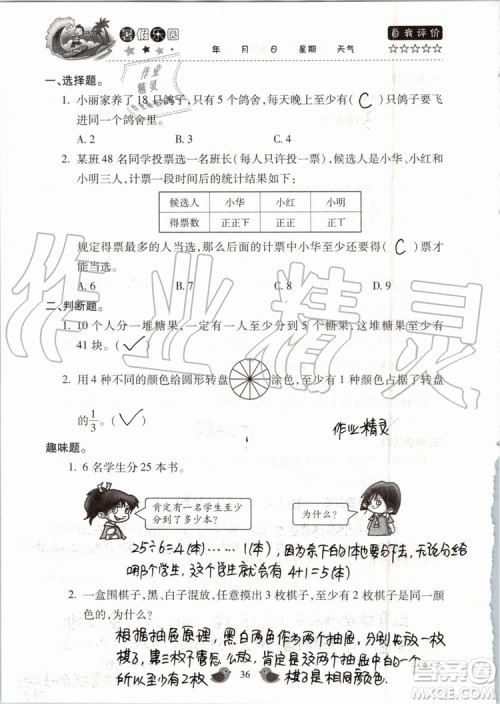 暑假乐园
年 月 日 星期 天气
自我评价
☆☆☆☆☆
一、选择题。
1. 小丽家养了 18 只鸽子,只有 5 个鸽舍,每天晚上至少有( C )只鸽子要飞进同一个鸽舍里。
A. 2 B. 3 C. 4
2. 某班 48 名同学投票选一名班长(每人只许投一票),候选人是小华、小红和小明三人,计票一段时间后的统计结果如下:
候选人 小华 小红 小明
得票数 正正下 正正 正丅
规定得票最多的人当选,那么后面的计票中小华至少再得( C )票才能当选。
A. 6 B. 7 C. 8 D. 9
二、判断题。
1. 10 个人分一堆糖果,一定有一个人至少分到 5 个糖果,这堆糖果至少有 41 块。( ✓ )
2. 用 4 种不同的颜色给圆形转盘 涂色,至少有 1 种颜色占据了转盘
的 1/3。( ✓ )
作业精灵
趣味题。
1. 6 名学生分 25 本书。
肯定有一名学生至少分到了多少本?
为什么?
25÷6=4(本)……1(本),因为余下的1本也要分下去,无论分给
哪个学生,这个学生就有 4+1=5(本)
2. 一盒围棋子,黑、白子混放,任意摸出 3 枚棋子,至少有 2 枚棋子是同一颜色的,为什么?
根据抽屉原理,黑白两色作为两个抽屉,分别先放一枚
棋子,第三枚不管怎么放,肯定是这两个抽屉中的一个
所以至少有2枚棋子是相同颜色.
36
作业精灵
答案圈
MXQE.COM